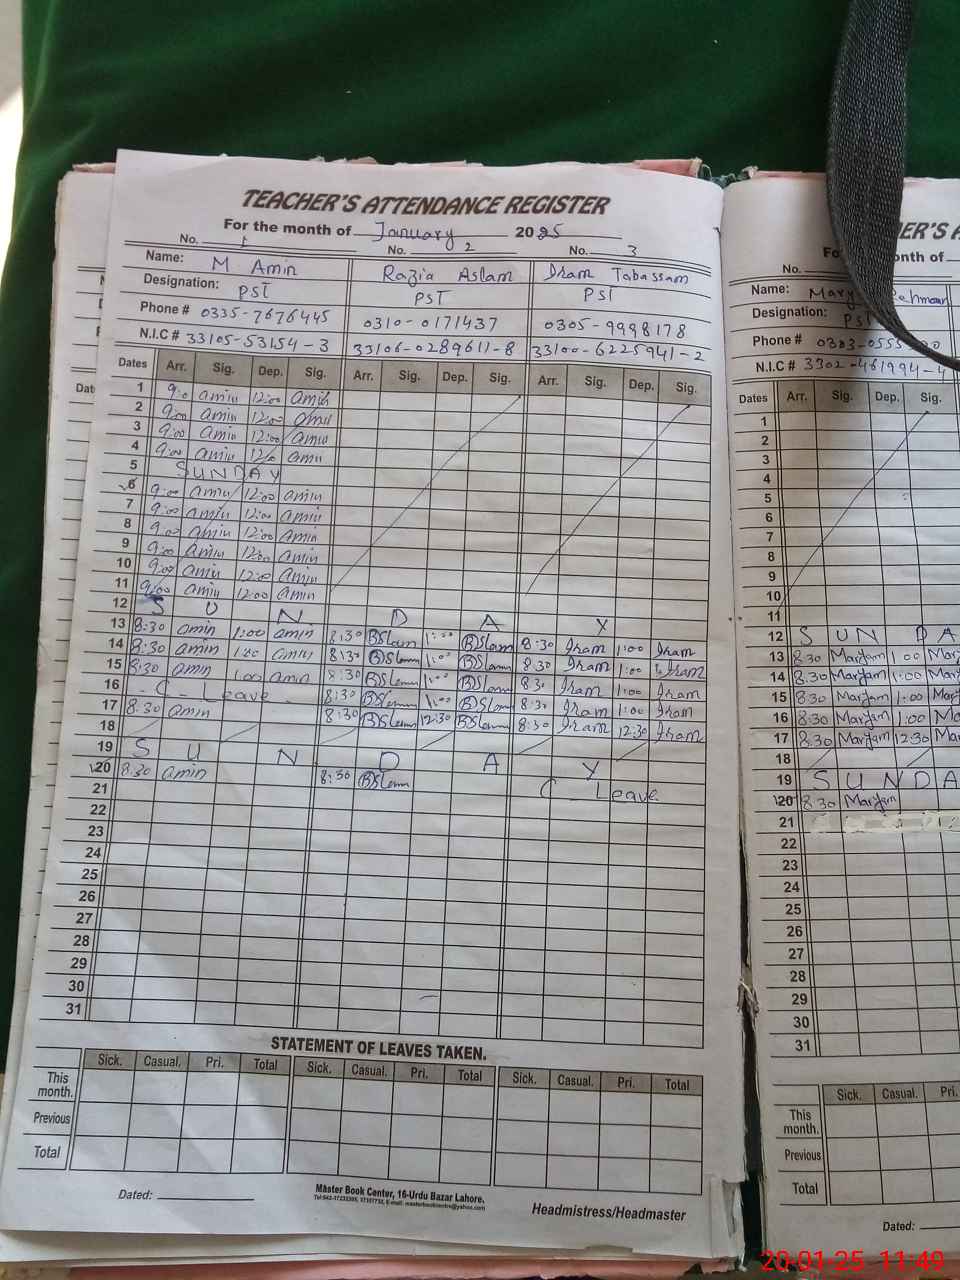 TEACHER'S ATTENDANCE REGISTER
For the month of January 2025
No. 1 No. 2 No. 3
Name: M Amin Razia Aslam Iram Tabassam
Designation: PST PST PST
Phone # 0335-7676445 0310-0171437 0305-9998178
N.I.C # 33105-53154-3 33106-0289611-8 33100-6225941-2
Dates Arr. Sig. Dep. Sig. Arr. Sig. Dep. Sig. Arr. Sig. Dep. Sig.
1 9:0 amin 12:00 amin
2 9:00 amin 12:00 amin
3 9:00 amin 12:00 amin
4 9:00 amin 12/0 amin
5 SUNDAY
6 9:00 amin 12:00 amin
7 9:00 amin 12:00 amin
8 9:00 amin 12:00 amin
9 9:00 amin 12:00 amin
10 9:00 amin 12:00 amin
11 9:00 amin 12:00 amin
12 S U N D A Y
13 8:30 amin 1:00 amin 8:30 BSlam 1:00 BSlam 8:30 Iram 1:00 Iram
14 8:30 amin 1:00 amin 8:30 BSlam 1:00 BSlam 8:30 Iram 1:00 Iram
15 8:30 amin 1:00 amin 8:30 BSlam 1:00 BSlam 8:30 Iram 1:00 Iram
16 - C - Leave 8:30 BSlam 1:00 BSlam 8:30 Iram 1:00 Iram
17 8:30 amin 8:30 BSlam 12:30 BSlam 8:30 Iram 12:30 Iram
18
19 S U N D A Y
20 8:30 amin 8:30 BSlam C - Leave
21
22
23
24
25
26
27
28
29
30
31
STATEMENT OF LEAVES TAKEN.
Sick. Casual. Pri. Total Sick. Casual. Pri. Total Sick. Casual. Pri. Total
This month.
Previous
Total
Dated:
Master Book Center, 16-Urdu Bazar Lahore.
Headmistress/Headmaster
ER'S A
onth of
No.
Name: ehman
Designation: PST
Phone # 0303-0555
N.I.C # 3302-461994-4
Dates Arr. Sig. Dep. Sig.
1
2
3
4
5
6
7
8
9
10
11
12 S U N D A
13 8:30 Maryam 1:00 Mary
14 8:30 Maryam 1:00 Mary
15 8:30 Maryam 1:00 Mary
16 8:30 Maryam 1:00 Mo
17 8:30 Maryam 12:30 Mary
18
19 S U N D A
20 8:30 Maryam
21
22
23
24
25
26
27
28
29
30
31
Sick. Casual. Pri.
This month.
Previous
Total
Dated:
20-01-25 11:49